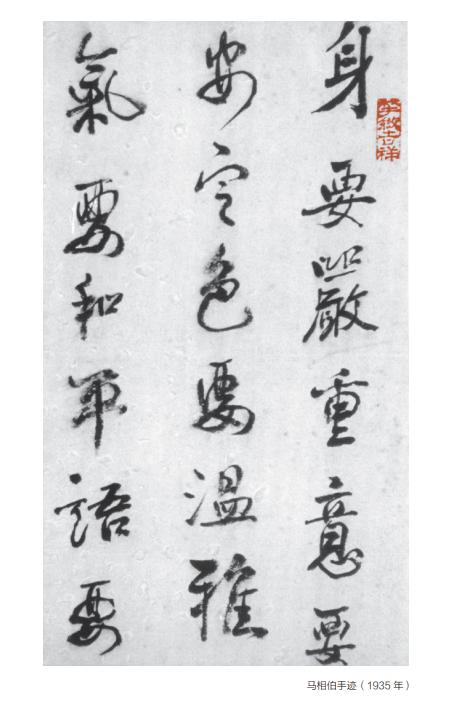 身要嚴重意要
安定色要温雅
氣要和平語要
吉祥
马相伯手迹（1935 年）